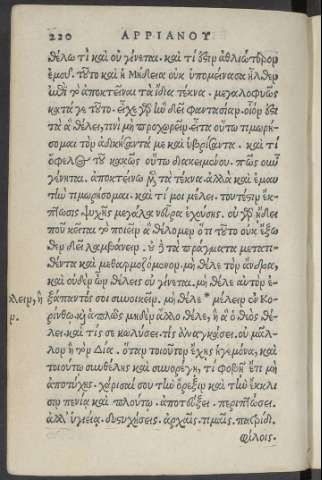 220 ΑΡΡΙΑΝΟΥ
θέλω τὶ καὶ οὐ γίνεται. καὶ τί ὅτιν ἀθλιώτερον
ἐμοῦ. τοῦτο καὶ ἡ Μήδεια οὐχ ὑπομείνασα ἦλθεν
ἐπὶ τὸ ἀποκτεῖναι τὰ ἴδια τέκνα. μεγαλοφυῶς
κατά γε τοῦτο. εἶχε γὰρ ἣν δεῖ φαντασίαν. οἷόν ὅτι
τὰ ἃ θέλει, τινὶ μὴ προχωρεῖν. εἶτα οὕτω τιμωρή-
σομαι τὸν ἀδικήσαντά με καὶ ὑβρίσαντα. καὶ τί
ὄφελος τοῦ κακῶς οὕτω διακειμένου. πῶς οὖν
γένηται. ἀποκτείνω μὲν τὰ τέκνα. ἀλλὰ καὶ ἐμαυ
τὴν τιμωρήσομαι. καὶ τί μοι μέλει. τοῦτ' ἔστιν ἐκ-
πτωσις ψυχῆς μεγάλα νεῦρα ἐχούσης. οὐ γὰρ ᾔδει
ποῦ κεῖται τὸ ποιεῖν ἃ θέλομεν ὅτι τοῦτο οὐκ ἔξω
θεν δεῖ λαμβάνειν. οὐδὲ τὰ πράγματα μετατι-
θέντα καὶ μεθαρμοζόμενον. μὴ θέλε τὸν ἄνδρα,
καὶ οὐδὲν ὧν θέλεις οὐ γίνεται. μὴ θέλε αὐτὸν ἐ-
ξάπαντός σοι συνοικεῖν. μὴ θέλε * μέλειν ἐν Κο-
ρίνθῳ. κὶ ἁπλῶς μηδὲν ἄλλο θέλε, ἢ ἃ ὁ θεὸς θέ-
λει. καὶ τίς σε κωλύσει. τίς ἀναγκάσει. οὐ μᾶλ-
λον ἢ τὸν Δία. ὅταν τοιοῦτον ἔχῃς ἡγεμόνα, καὶ
τοιούτῳ συνθέλῃς καὶ συνορέγῃ, τί φοβῇ ἔτι μὴ
ἀποτύχῃς. χάρισαί σου τὴν ὄρεξιν καὶ τὴν ἔκκλι
σιν πενίᾳ καὶ πλούτῳ. ἀποτεύξει. περιπέσεις.
ἀλλ' ὑγιείᾳ. δυστυχήσεις. ἀρχαῖς. τιμαῖς. πατρίδι.
φίλοις.